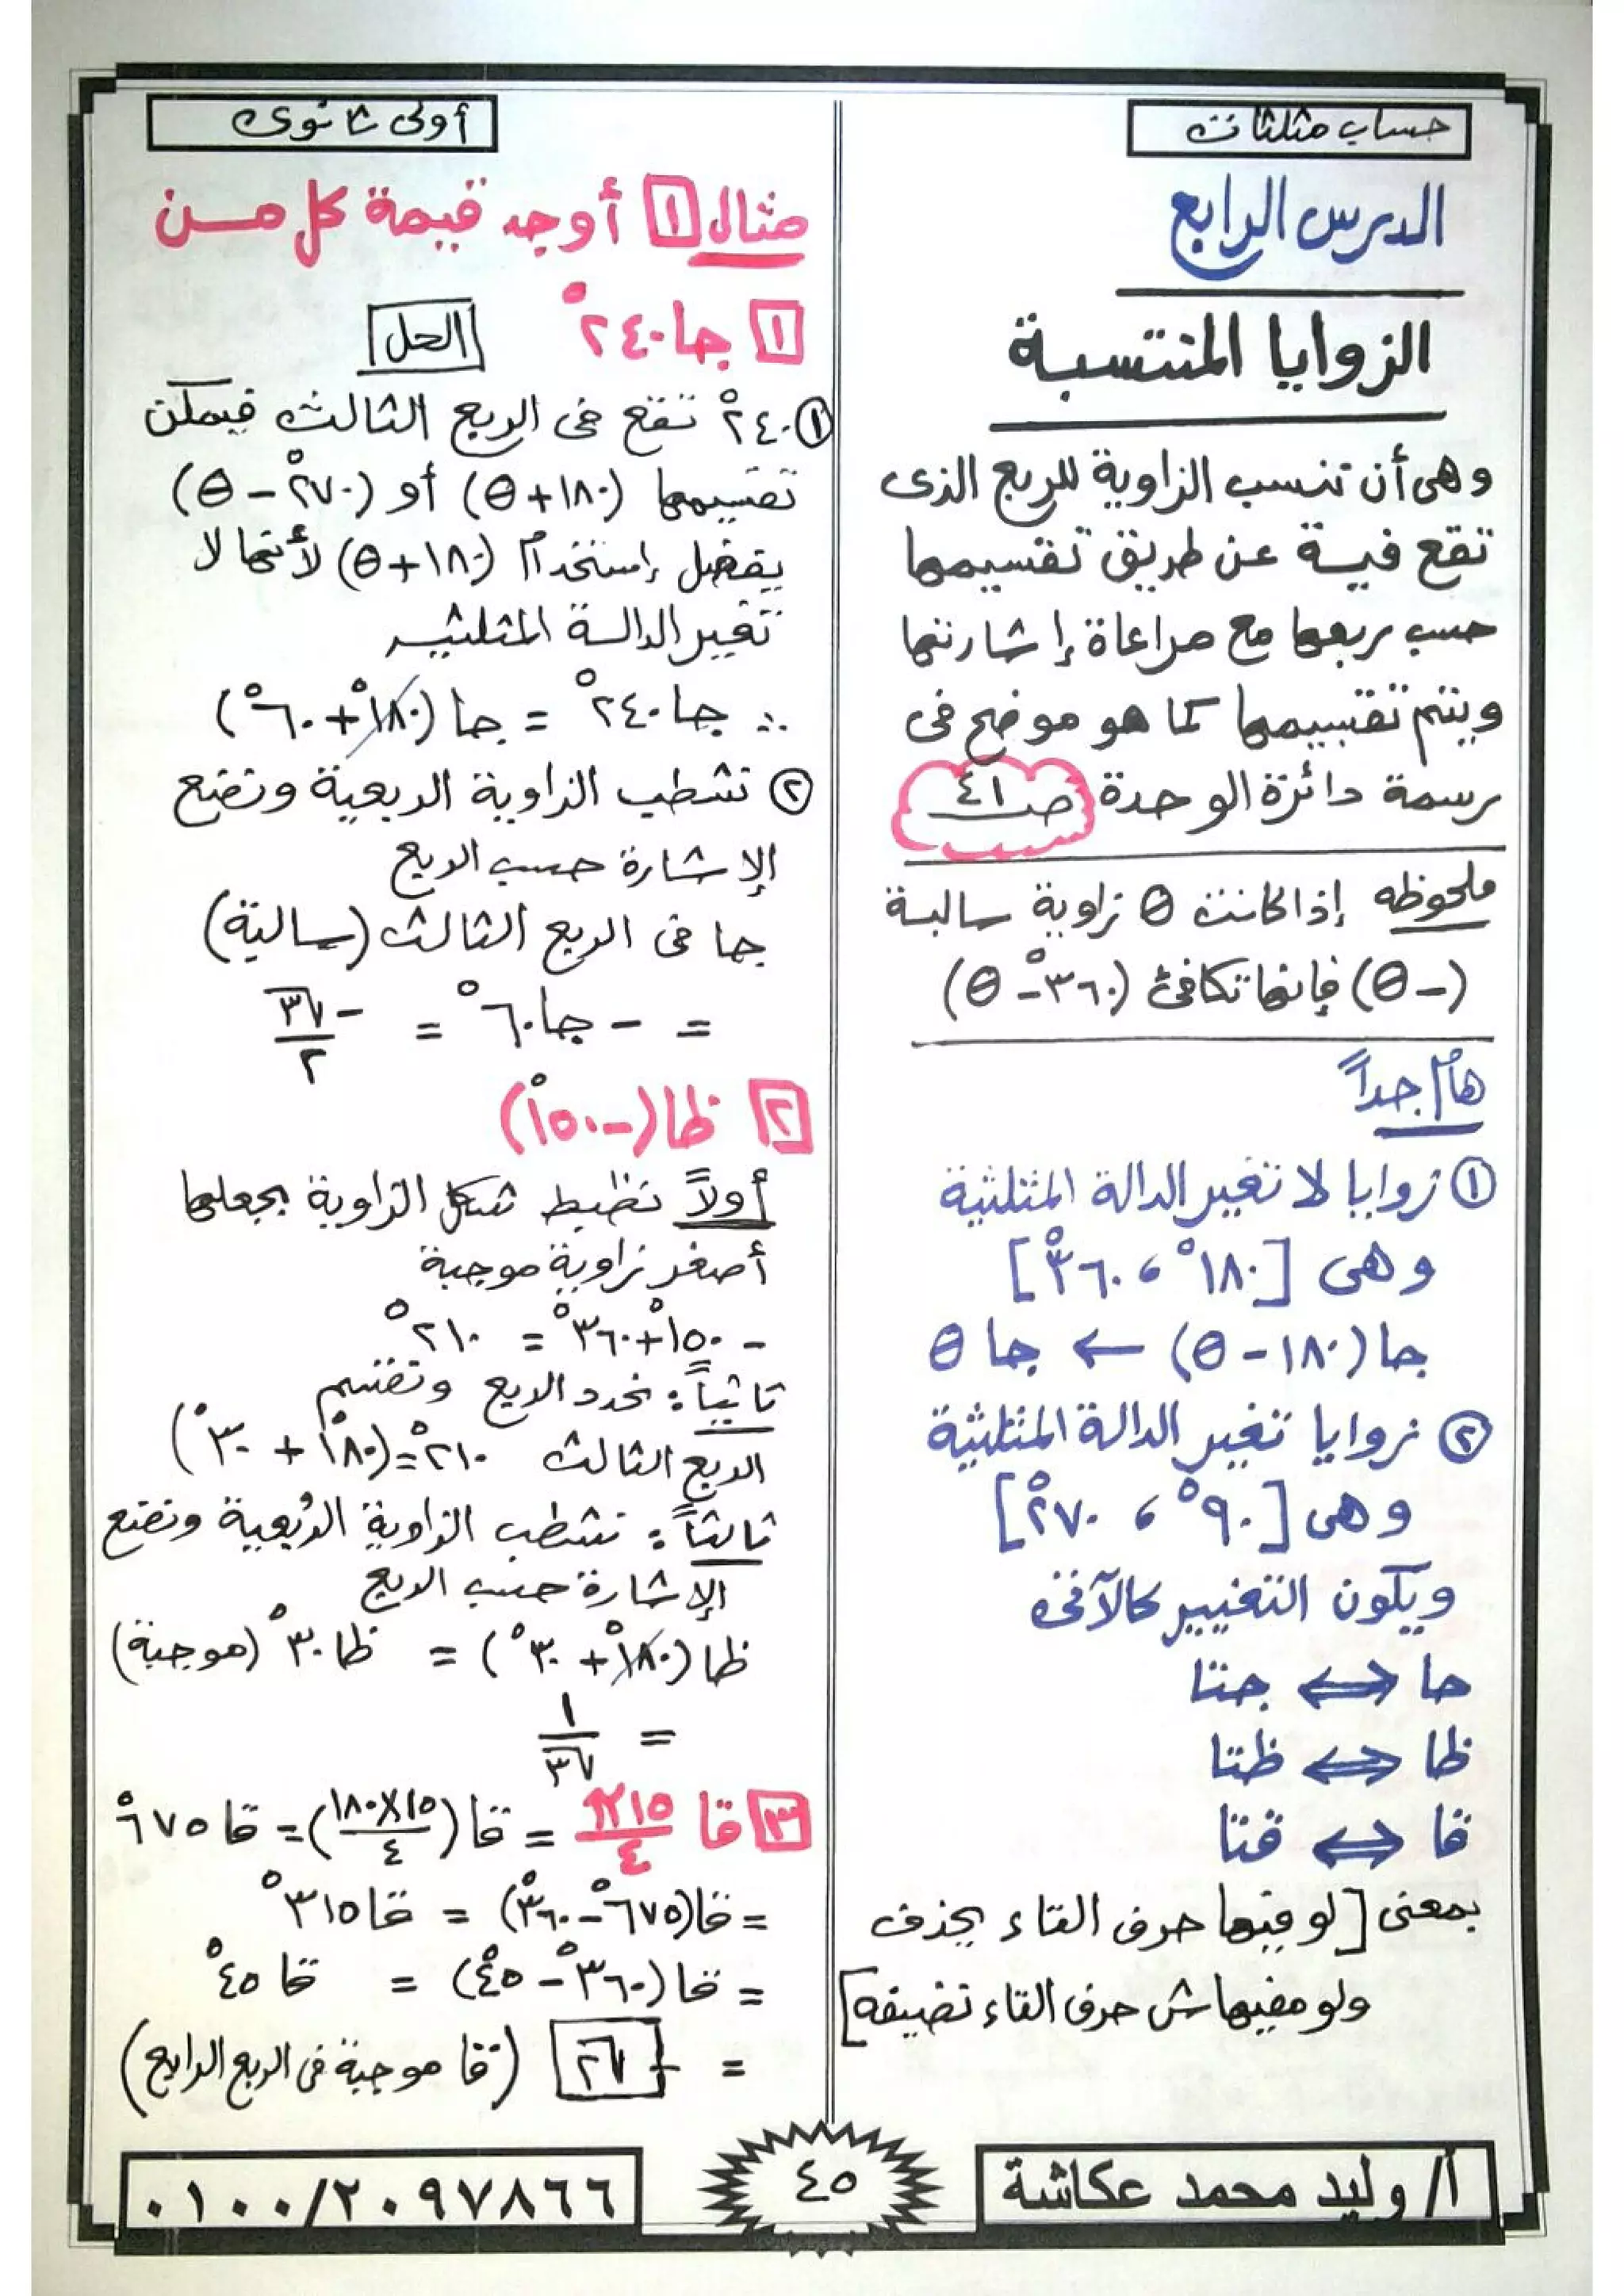 حساب مثلثات
أولى ثانوى
الدرس الرابع
الزوايا المنتسبة
وهى أن تنسب الزاوية للربع الذى
تقع فيه عن طريق تقسيمها
حسب ربعها مع مراعاة إشارتها
ويتم تقسيمها كما هو موضح فى
رسمة دائرة الوحدة صـ ٤١
ملحوظه إذا كانت θ زاوية سالبة
(-θ) فإنها تكافئ (٣٦٠° - θ)
هام جداً
① زوايا لا تغير الدالة المثلثية
وهى [١٨٠° ، ٣٦٠°]
جا (١٨٠ - θ) ← جا θ
② زوايا تغير الدالة المثلثية
وهى [٩٠° ، ٢٧٠°]
ويكون التغيير كالآتى
جا ⇔ جتا
ظا ⇔ ظتا
قا ⇔ قتا
بمعنى [لو فيها حرف التاء يحذف
ولو مفيهاش حرف التاء تضيفه]
مثال ١ أوجد قيمة كل من
١ جا ٢٤٠°
الحل
① ٢٤٠° تقع فى الربع الثالث فيمكن
تقسيمها (١٨٠ + θ) أو (٢٧٠° - θ)
يفضل إستخدام (١٨٠ + θ) لأنها لا
تغير الدالة المثلثيه
∴ جا ٢٤٠° = جا (١٨٠° + ٦٠°)
② نشطب الزاوية الربعية ونضع
الإشارة حسب الربع
جا فى الربع الثالث (سالبة)
= - جا ٦٠° = -√٣/٢
٢ ظا (-١٥٠°)
أولاً نظبط شكل الزاوية بجعلها
أصغر زاوية موجبة
- ١٥٠° + ٣٦٠° = ٢١٠°
ثانياً : نحدد الربع ونقسم
الربع الثالث ٢١٠° = (١٨٠° + ٣٠°)
ثالثاً : نشطب الزاوية الربعية ونضع
الإشارة حسب الربع
ظا (١٨٠° + ٣٠°) = ظا ٣٠° (موجبة)
= ١/√٣
٣ قا ١٥π/٤ = قا (١٥×١٨٠/٤) = قا ٦٧٥°
= قا (٦٧٥° - ٣٦٠°) = قا ٣١٥°
= قا (٣٦٠° - ٤٥°) = قا ٤٥°
= +√٢ (قا موجبة فى الربع الرابع)
أ/ وليد محمد عكاشة
٤٥
٠١٠٠/٢٠٩٧٨٦٦